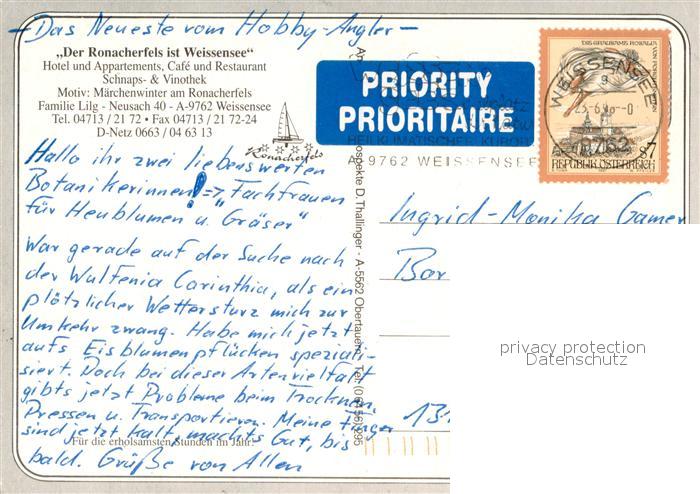 - Das Neueste vom Hobby-Angler -
„Der Ronacherfels ist Weissensee"
Hotel und Appartements, Café und Restaurant
Schnaps- & Vinothek
Motiv: Märchenwinter am Ronacherfels
Familie Lilg - Neusach 40 - A-9762 Weissensee
Tel. 04713 / 21 72 • Fax 04713 / 21 72-24
D-Netz 0663 / 04 63 13
Ronacherfels
Hallo ihr zwei liebenswerten
Botanikerinnen! => „Fachfrauen
für Heublumen u. Gräser"
War gerade auf der Suche nach
der Wulfenia Carinthia, als ein
plötzlicher Wettersturz mich zur
Umkehr zwang. Habe mich jetzt
aufs Eisblumenpflücken speziali-
siert. Doch bei dieser Artenvielfalt
gibts jetzt Probleme beim Trocknen,
Pressen u. Transportieren. Meine Finger
sind jetzt kalt, machts Gut, bis
bald. Grüße von Allen
Für die erholsamsten Stunden im Jahr!
Prospekte D. Thallinger - A-5562 Obertauern - Tel. (0 64 56)
PRIORITY
PRIORITAIRE
HEILKLIMATISCHER KURORT
A-9762 WEISSENSEE
WEISSENSEE
9762
REPUBLIK ÖSTERREICH
Ingrid-Monika Gamer
Bar
13
privacy protection
Datenschutz